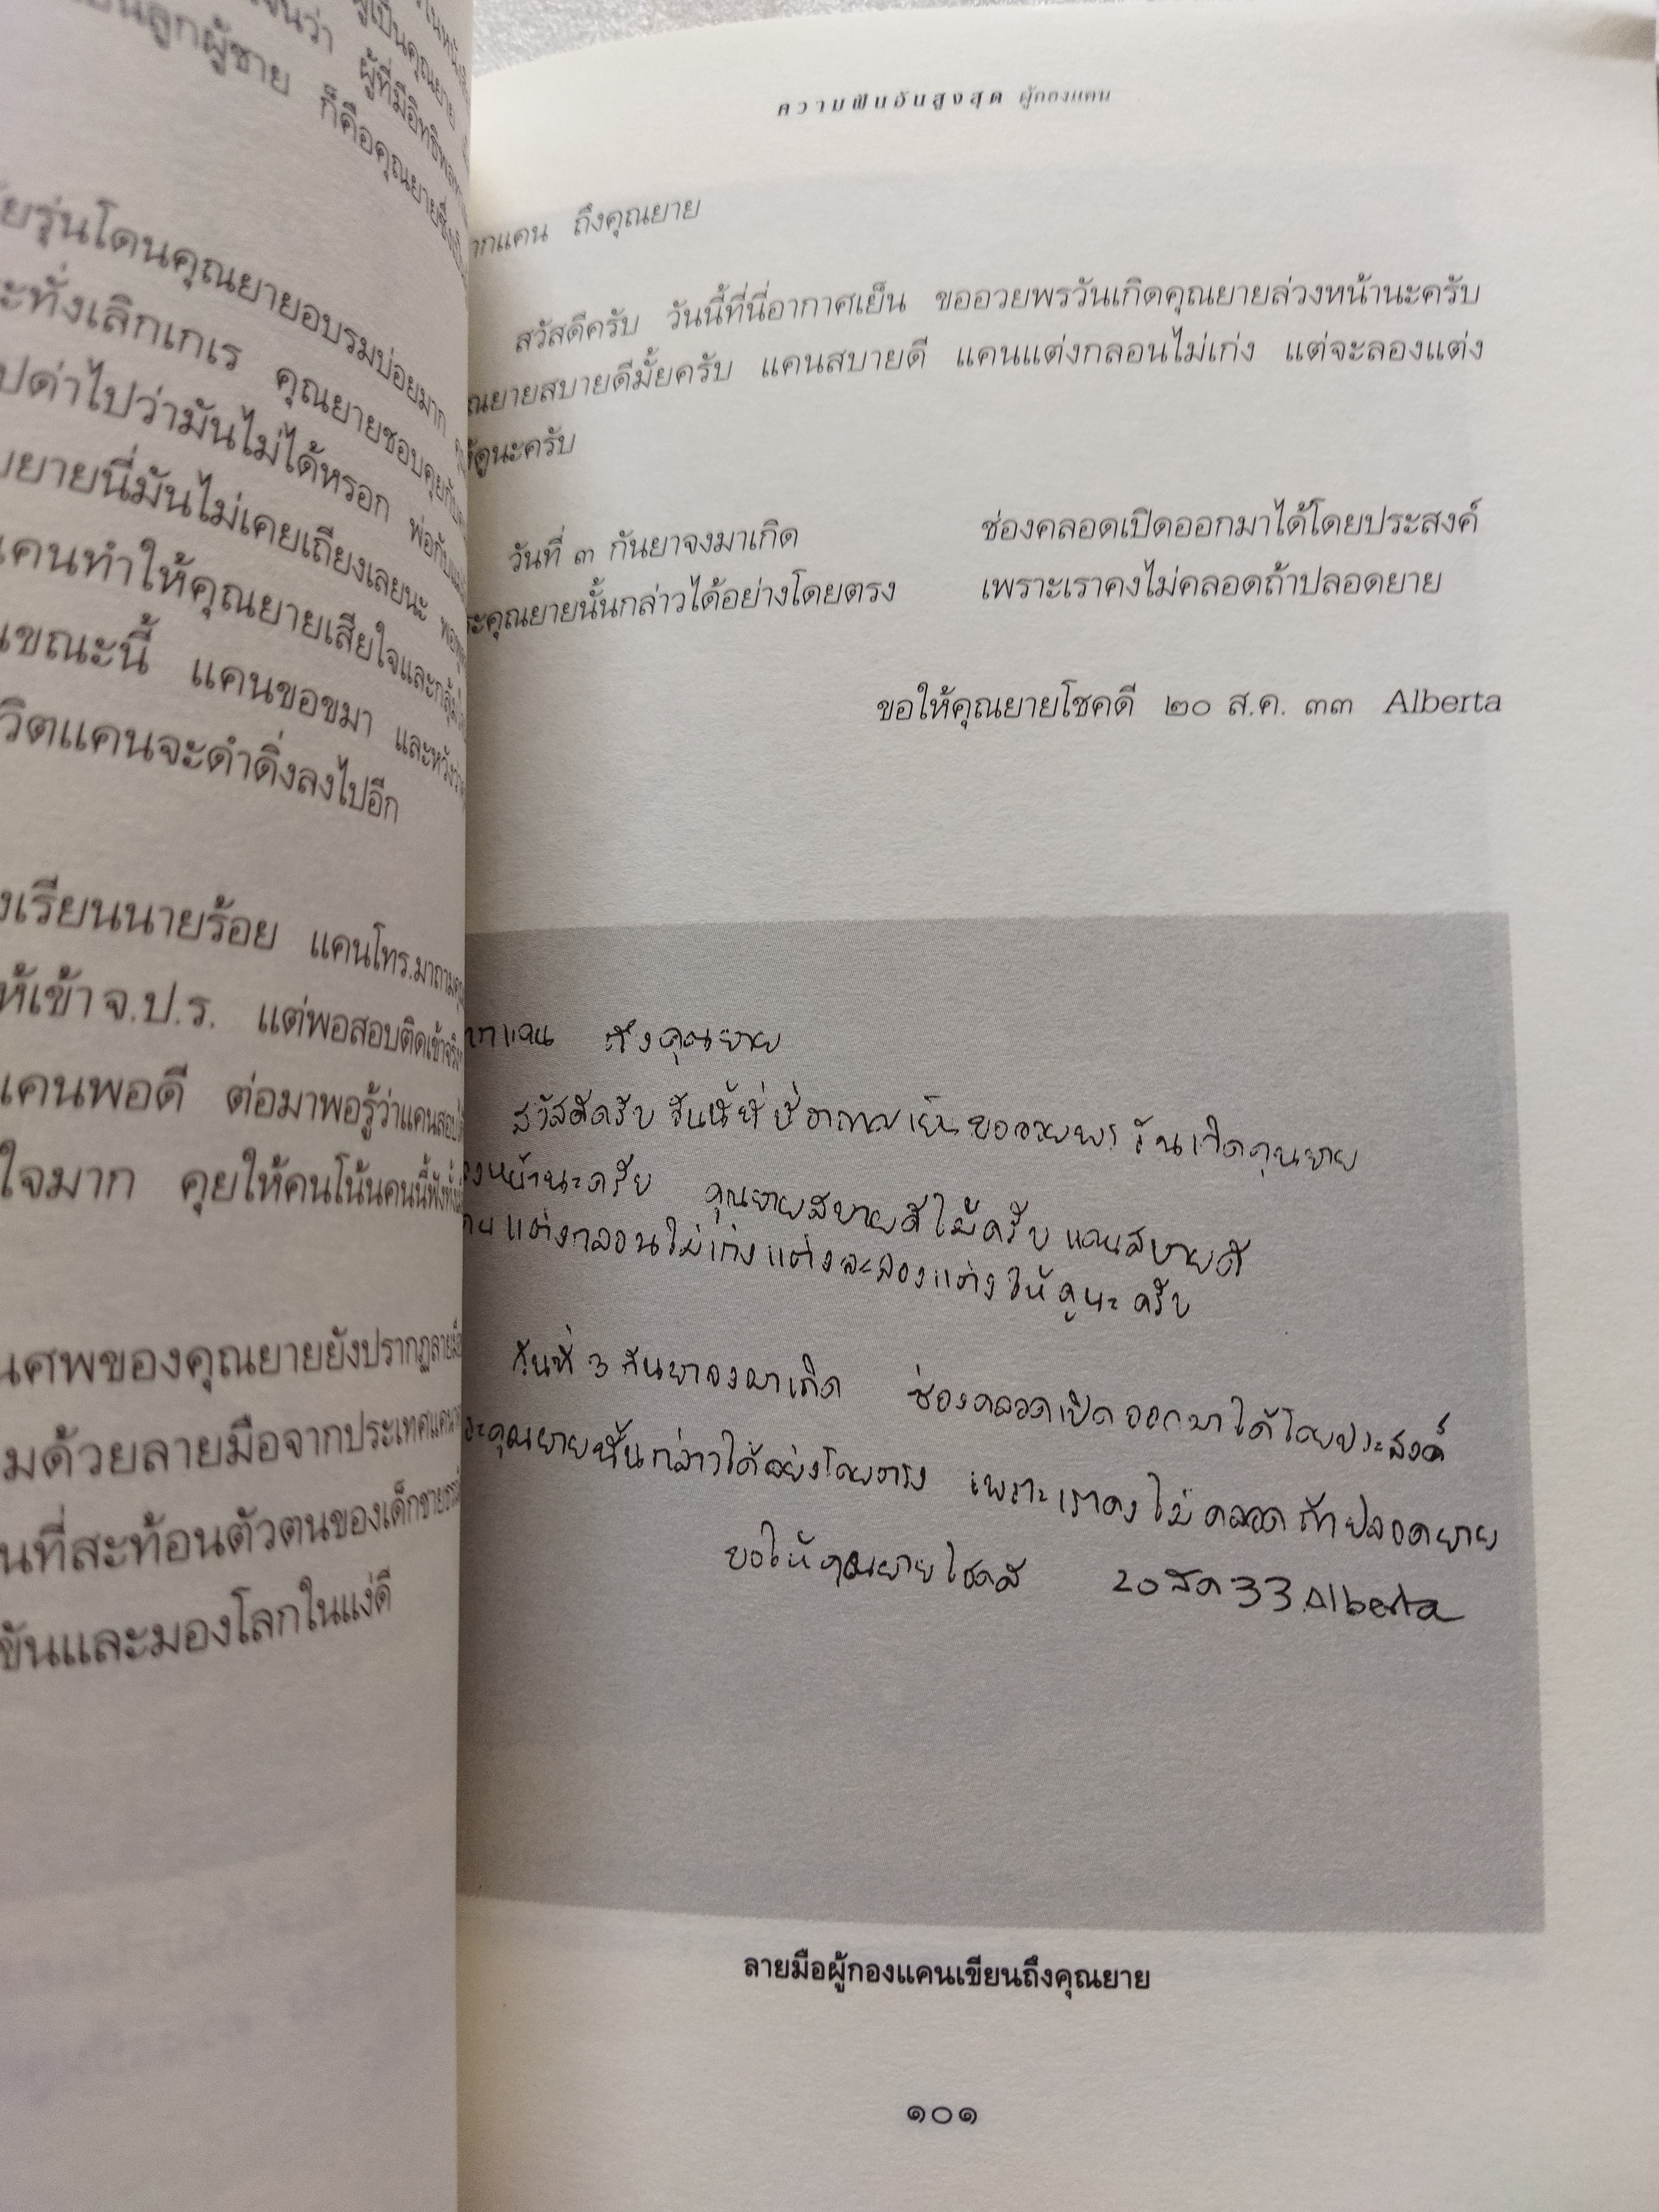 ก็คือคุณยายซึ่ง
ยรุ่นโดนคุณยายอบรมบ่อยมาก
ะทั่งเลิกเกเร คุณยายชอบคุยกับ
ปด่าไปว่ามันไม่ได้หรอก พ่อกับแม่
ยายนี่มันไม่เคยเถียงเลยนะ
แคนทำให้คุณยายเสียใจและกลุ้ม
นขณะนี้ แคนขอขมา และหวังว่า
วิตแคนจะดำดิ่งลงไปอีก
งเรียนนายร้อย แคนโทร.มาถาม
ห้เข้า จ.ป.ร. แต่พอสอบติดเข้าจริง
แคนพอดี ต่อมาพอรู้ว่าแคนสอบได้
ใจมาก คุยให้คนโน้นคนนี้ฟัง
นศพของคุณยายยังปรากฏลายมือ
มด้วยลายมือจากประเทศแคน
นที่สะท้อนตัวตนของเด็กชาย
ขันและมองโลกในแง่ดี
ความฝันอันสูงสุด ผู้กองแคน
ากแคน ถึงคุณยาย
สวัสดีครับ วันนี้ที่นี่อากาศเย็น ขออวยพรวันเกิดคุณยายล่วงหน้านะครับ
ุณยายสบายดีมั้ยครับ แคนสบายดี แคนแต่งกลอนไม่เก่ง แต่จะลองแต่ง
ห้ดูนะครับ
วันที่ ๓ กันยาจงมาเกิด ช่องคลอดเปิดออกมาได้โดยประสงค์
ะคุณยายนั้นกล่าวได้อย่างโดยตรง เพราะเราคงไม่คลอดถ้าปลอดยาย
ขอให้คุณยายโชคดี ๒๐ ส.ค. ๓๓ Alberta
ากแคน ถึงคุณยาย
สวัสดีครับ วันนี้ที่นี่อากาศเย็น ขออวยพรวันเกิดคุณยาย
งหน้านะครับ คุณยายสบายดีไม้ครับ แคนสบายดี
คนแต่งกลอนไม่เก่ง แต่งจะลองแต่งให้ดูนะครับ
วันที่ 3 กันยาจงมาเกิด ช่องคลอดเปิดออกมาได้โดยประสงค์
ะคุณยายนั้นกล่าวได้อย่งโดยตรง เพราะเราคงไม่คลอดถ้าปลอดยาย
ขอให้คุณยายโชคดี 20 สค 33 Alberta
ลายมือผู้กองแคนเขียนถึงคุณยาย
๑๐๑